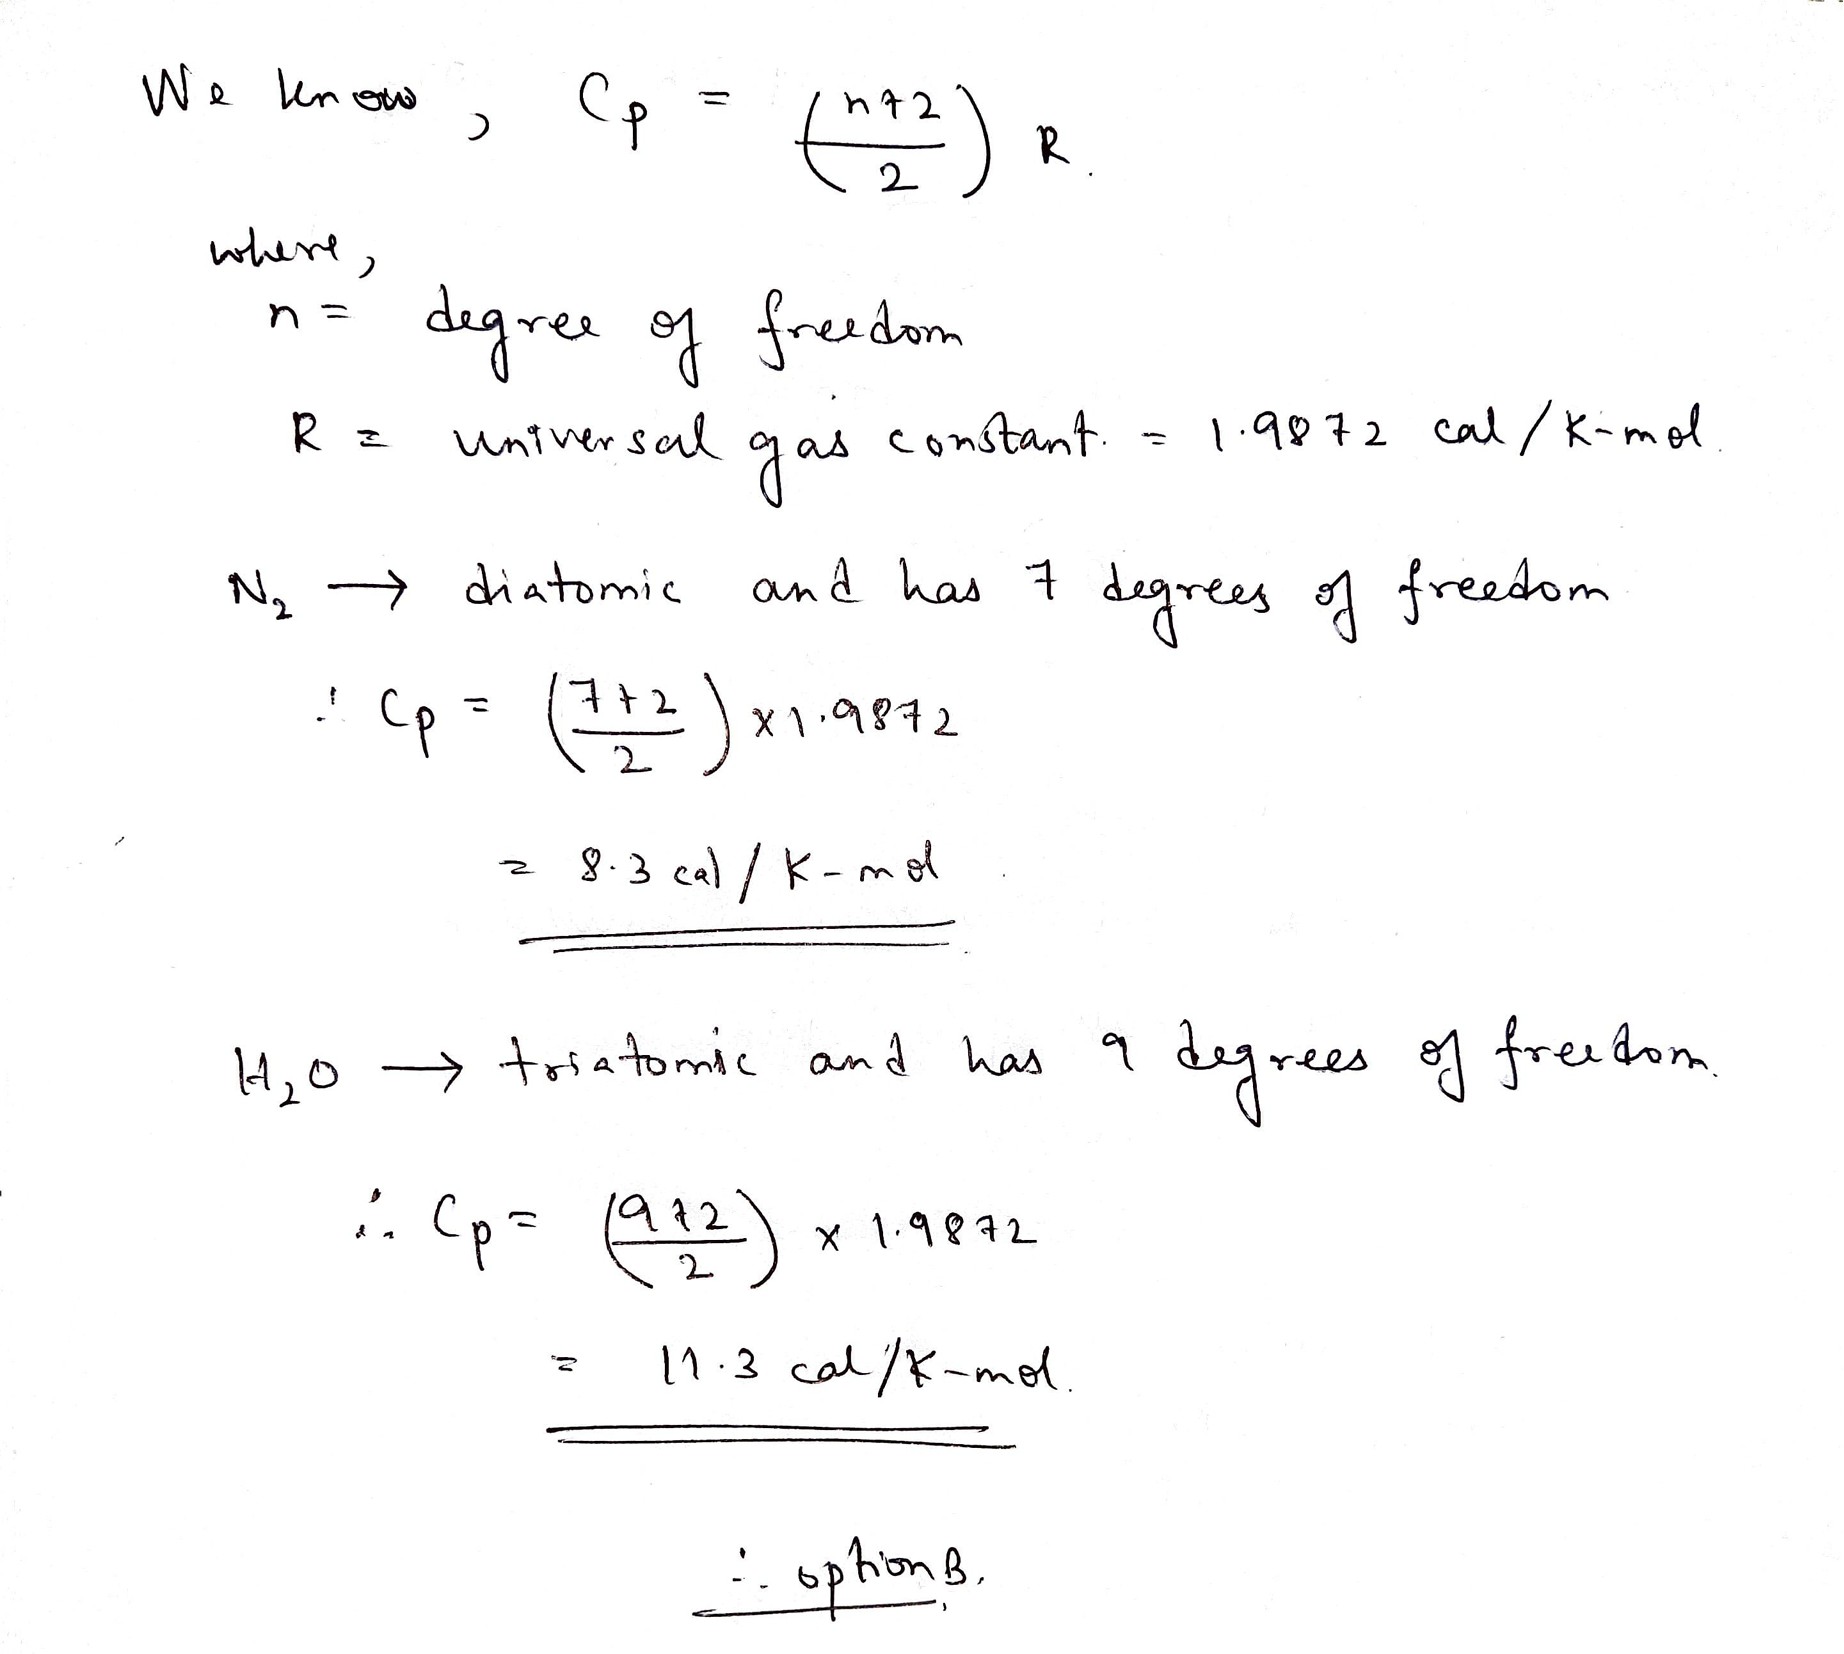 We know, Cp = (n+2/2) R.
where,
n = degree of freedom
R = universal gas constant. = 1.9872 cal/K-mol.
N₂ → diatomic and has 7 degrees of freedom
∴ Cp = (7+2/2) x 1.9872
= 8.3 cal/K-mol
H₂O → triatomic and has 9 degrees of freedom.
∴ Cp = (9+2/2) x 1.9872
= 11.3 cal/K-mol.
∴ option B.